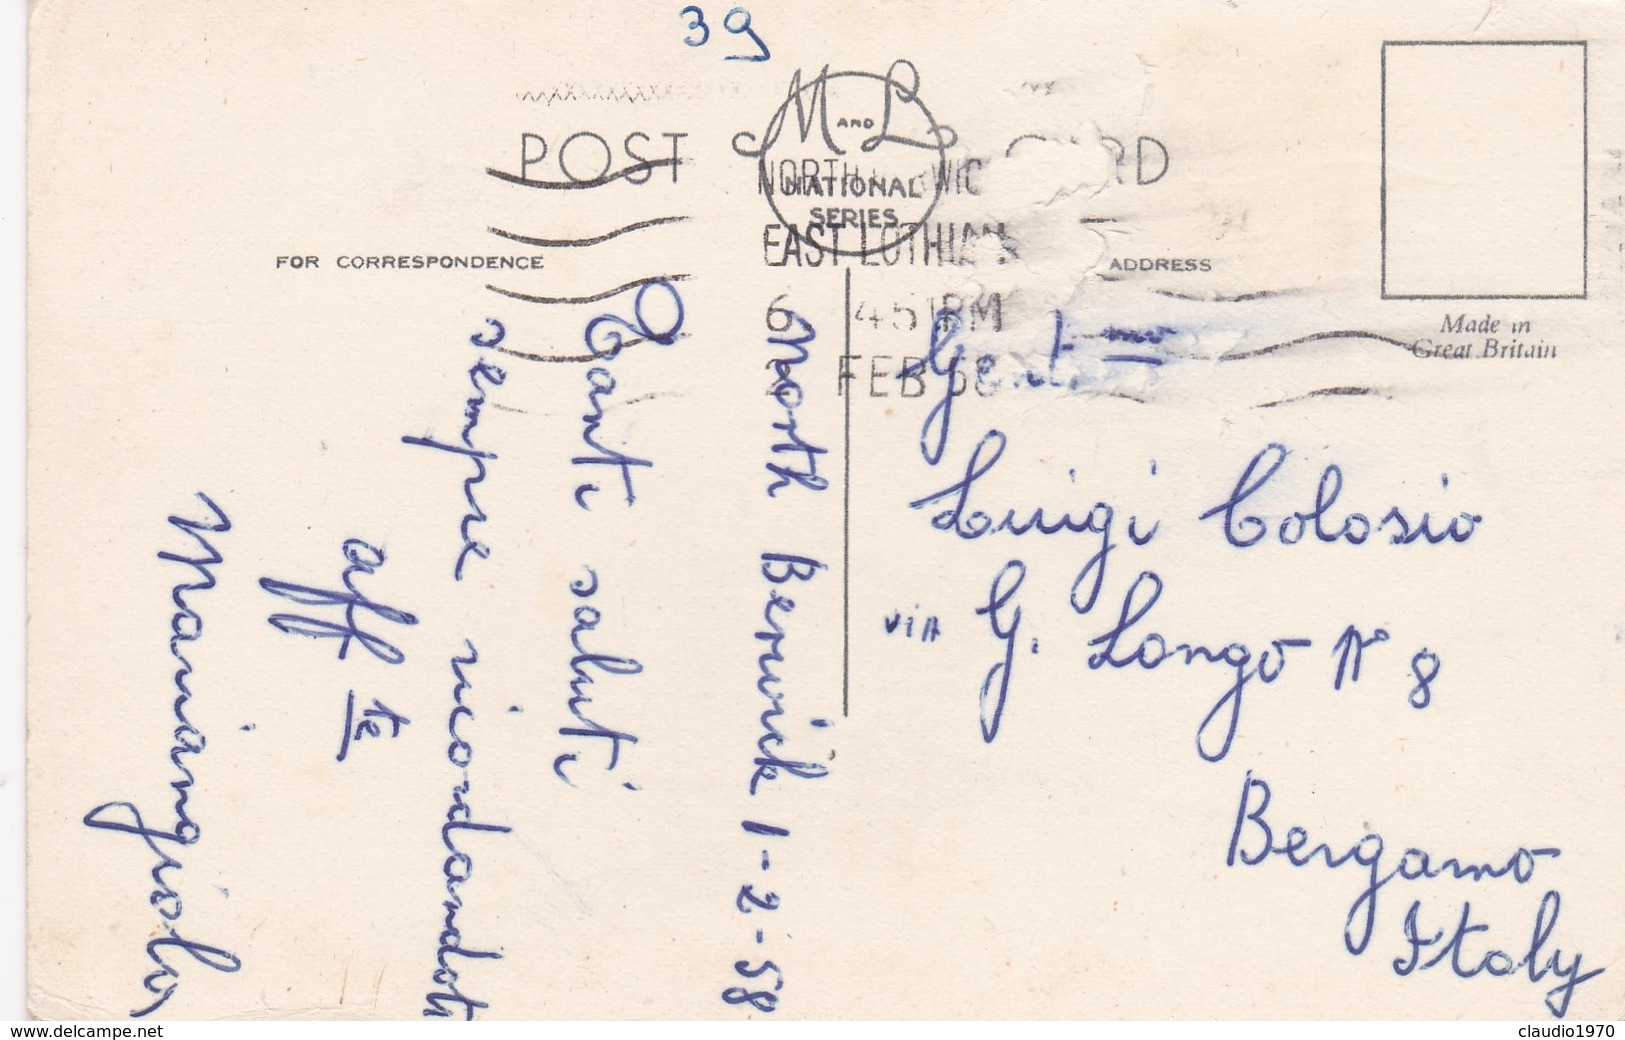 39
POST CARD
M AND L
NATIONAL
SERIES
NORTH BERWIC
EAST LOTHIAN
6 45 PM
2 FEB 58
FOR CORRESPONDENCE
ADDRESS
Made in
Great Britain
North Berwick 1-2-58
Tanti saluti
sempre ricordandoti
aff te
Mariangiola
Gent. mo
Luigi Colosio
via G. Longo N° 8
Bergamo
Italy
www.delcampe.net
claudio1970